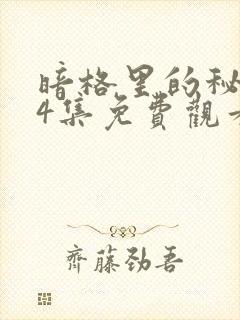 暗格里的秘
4集免費觀
齊藤劲吾